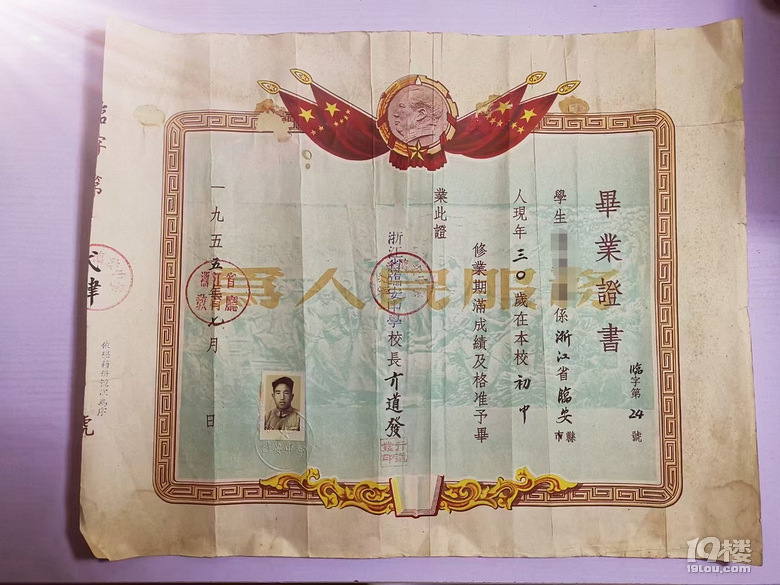 畢業證書
臨字第24號
學生
係浙江省臨安縣市
人現年三〇歲在本校初中
修業期滿成績及格准予畢
業此證
浙江省臨安中學校長亓道發
一九五五年七月 日
為人民服務
臨字第
號
19楼
19lou.com